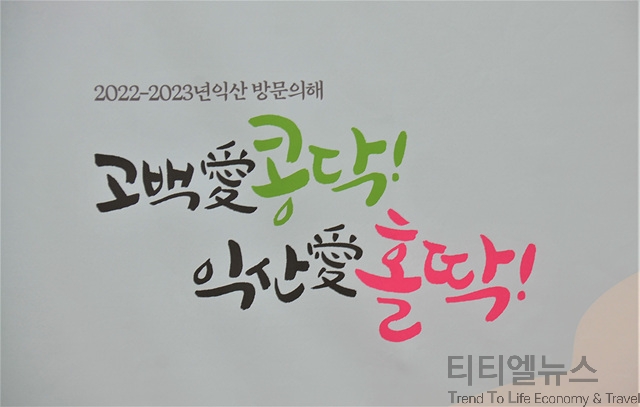 2022-2023년익산 방문의해
고백愛콩닥!
익산愛홀딱!
티티엘뉴스
Trend To Life Economy & Travel